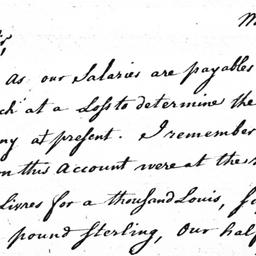 As our Salaries are payables
at a Loss to determine the
at present. I remember
this Account were at the
Livres for a thousand Louis,
pound Sterling, Our half